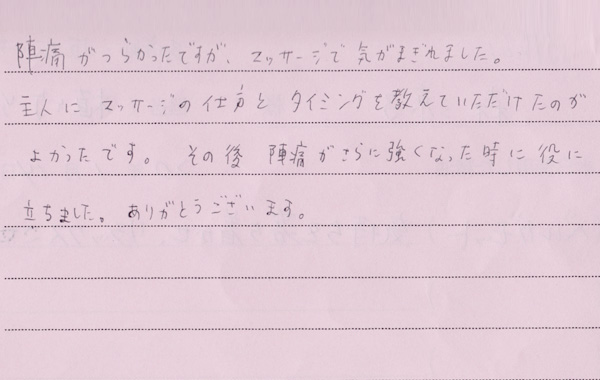 陣痛がつらかったですが、マッサージで気がまぎれました。
主人にマッサージの仕方とタイミングを教えていただけたのが
よかったです。その後陣痛がさらに強くなった時に役に
立ちました。ありがとうございます。